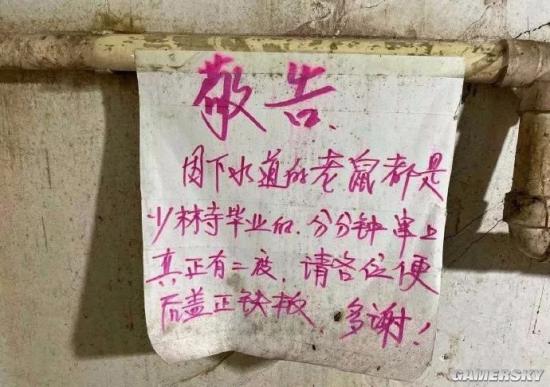 敬告
因下水道的老鼠都是
少林寺毕业的.分分钟串上
真正有二度.请各位便
后盖正铁板.多谢!
GAMERSKY